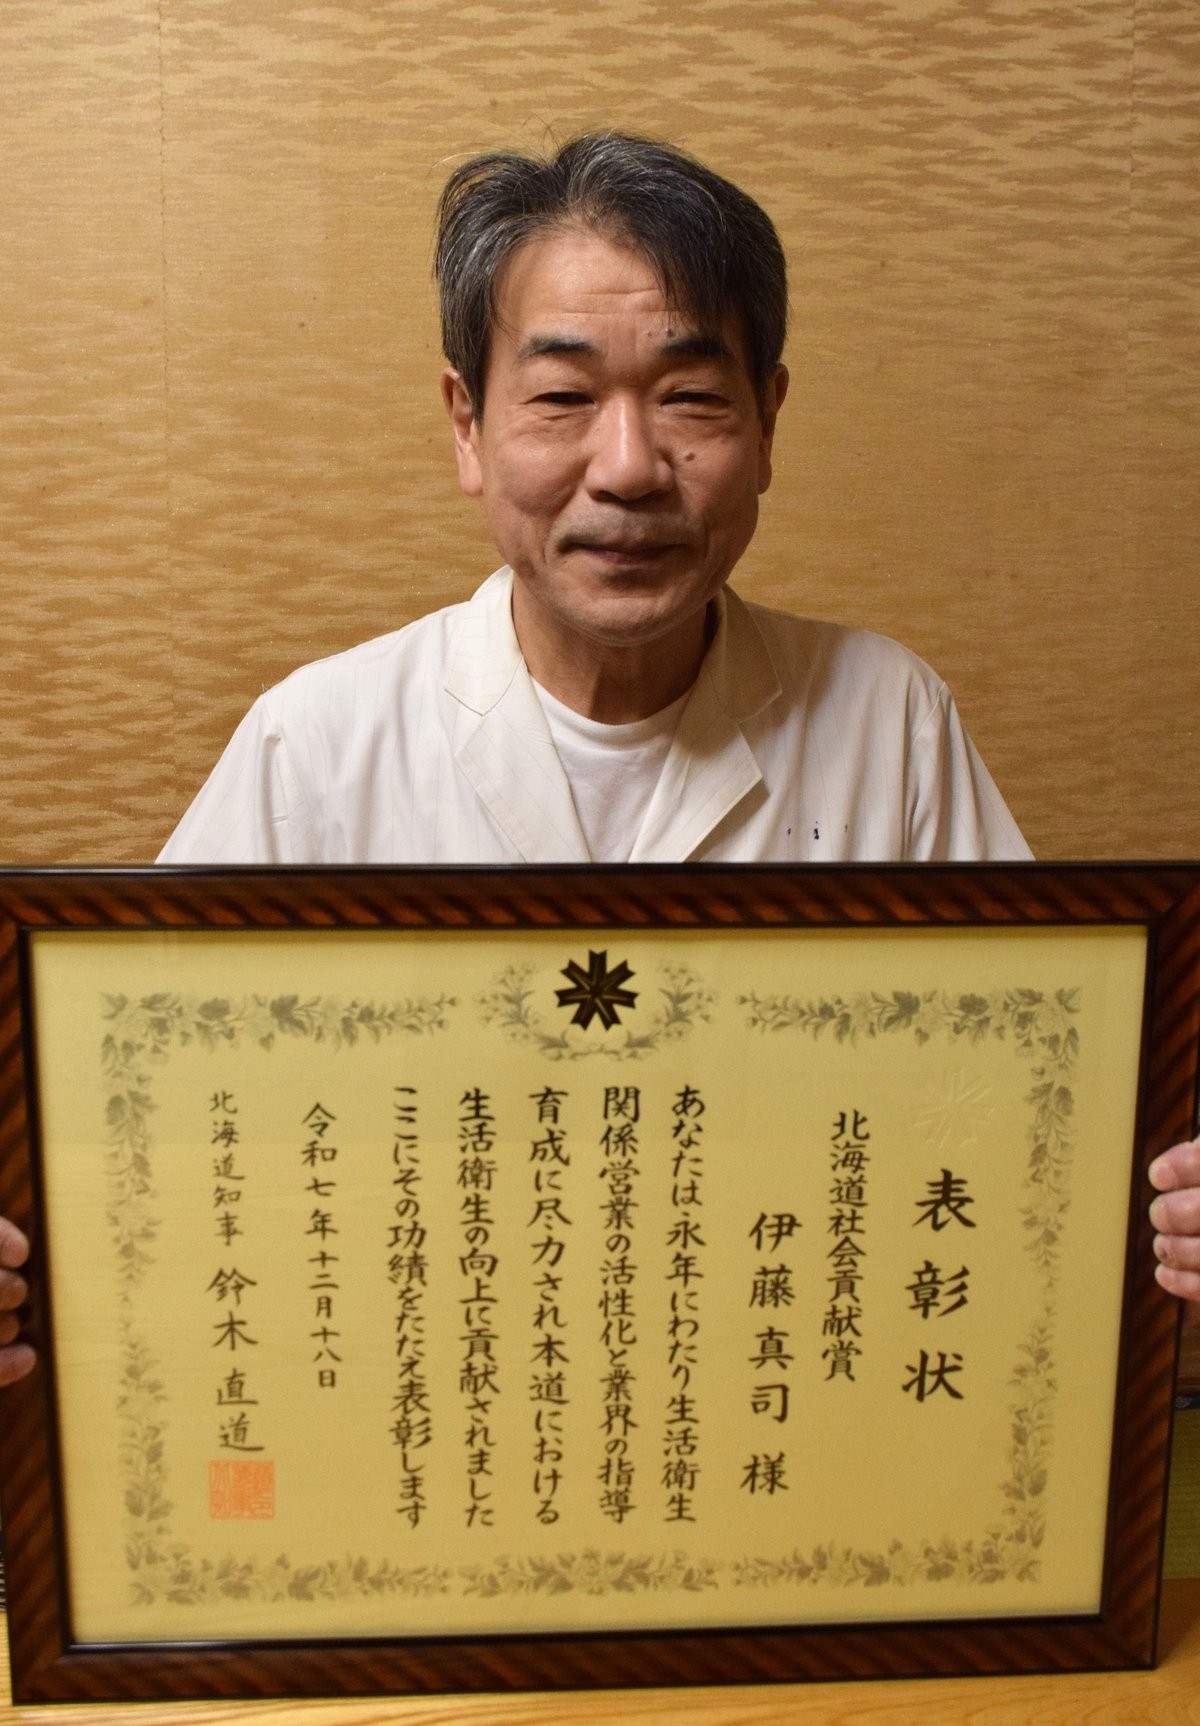 表彰状
北海道社会貢献賞
伊藤真司様
あなたは永年にわたり生活衛生
関係営業の活性化と業界の指導
育成に尽力され本道における
生活衛生の向上に貢献されました
ここにその功績をたたえ表彰します
令和七年十二月十八日
北海道知事 鈴木直道